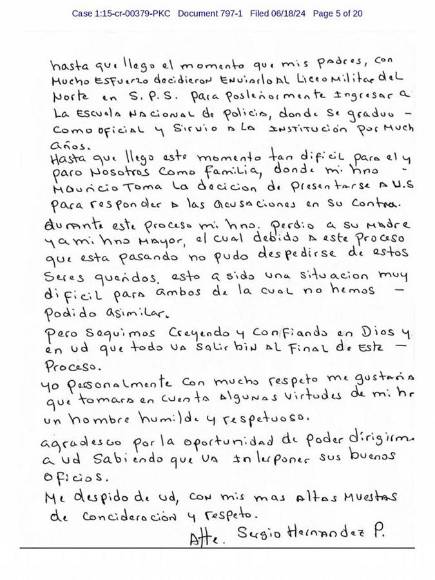 Case 1:15-cr-00379-PKC Document 797-1 Filed 06/18/24 Page 5 of 20
hasta que llego el momento que mis padres, con
mucho esfuerzo decidieron Enviarlo AL Liceo Militar del
Norte en S.P.S. para posteriormente Ingresar a
La Escuela Nacional de Policia, donde se graduo -
como oficial y Sirvio a la Institución por Much
años.
Hasta que llego este momento tan dificil para el y
para Nosotros como familia, donde mi hno -
Mauricio Toma la decicion de presentarse a U.S
para responder a las acusaciones en su contra.
durante este proceso mi hno. perdio a su Madre
y a mi hno Mayor, el cual debido a este proceso
que esta pasando no pudo despedirse de estos
Seres queridos, esto a sido una situacion muy
dificil para ambos de la cual no hemos -
podido asimilar.
Pero Seguimos Creyendo y Confiando en Dios y
en ud que todo va salir bin al final de Este -
Proceso.
yo Personalmente con mucho respeto me gustaria
que tomara en cuenta algunas virtudes de mi hr
un hombre humilde y respetuoso.
agradesco por la oportunidad de poder dirigirm
a ud sabiendo que va Interponer sus buenos
oficios.
Me despido de ud, con mis mas altas muestras
de concideración y respeto.
Atte. Sergio Hernandez P.